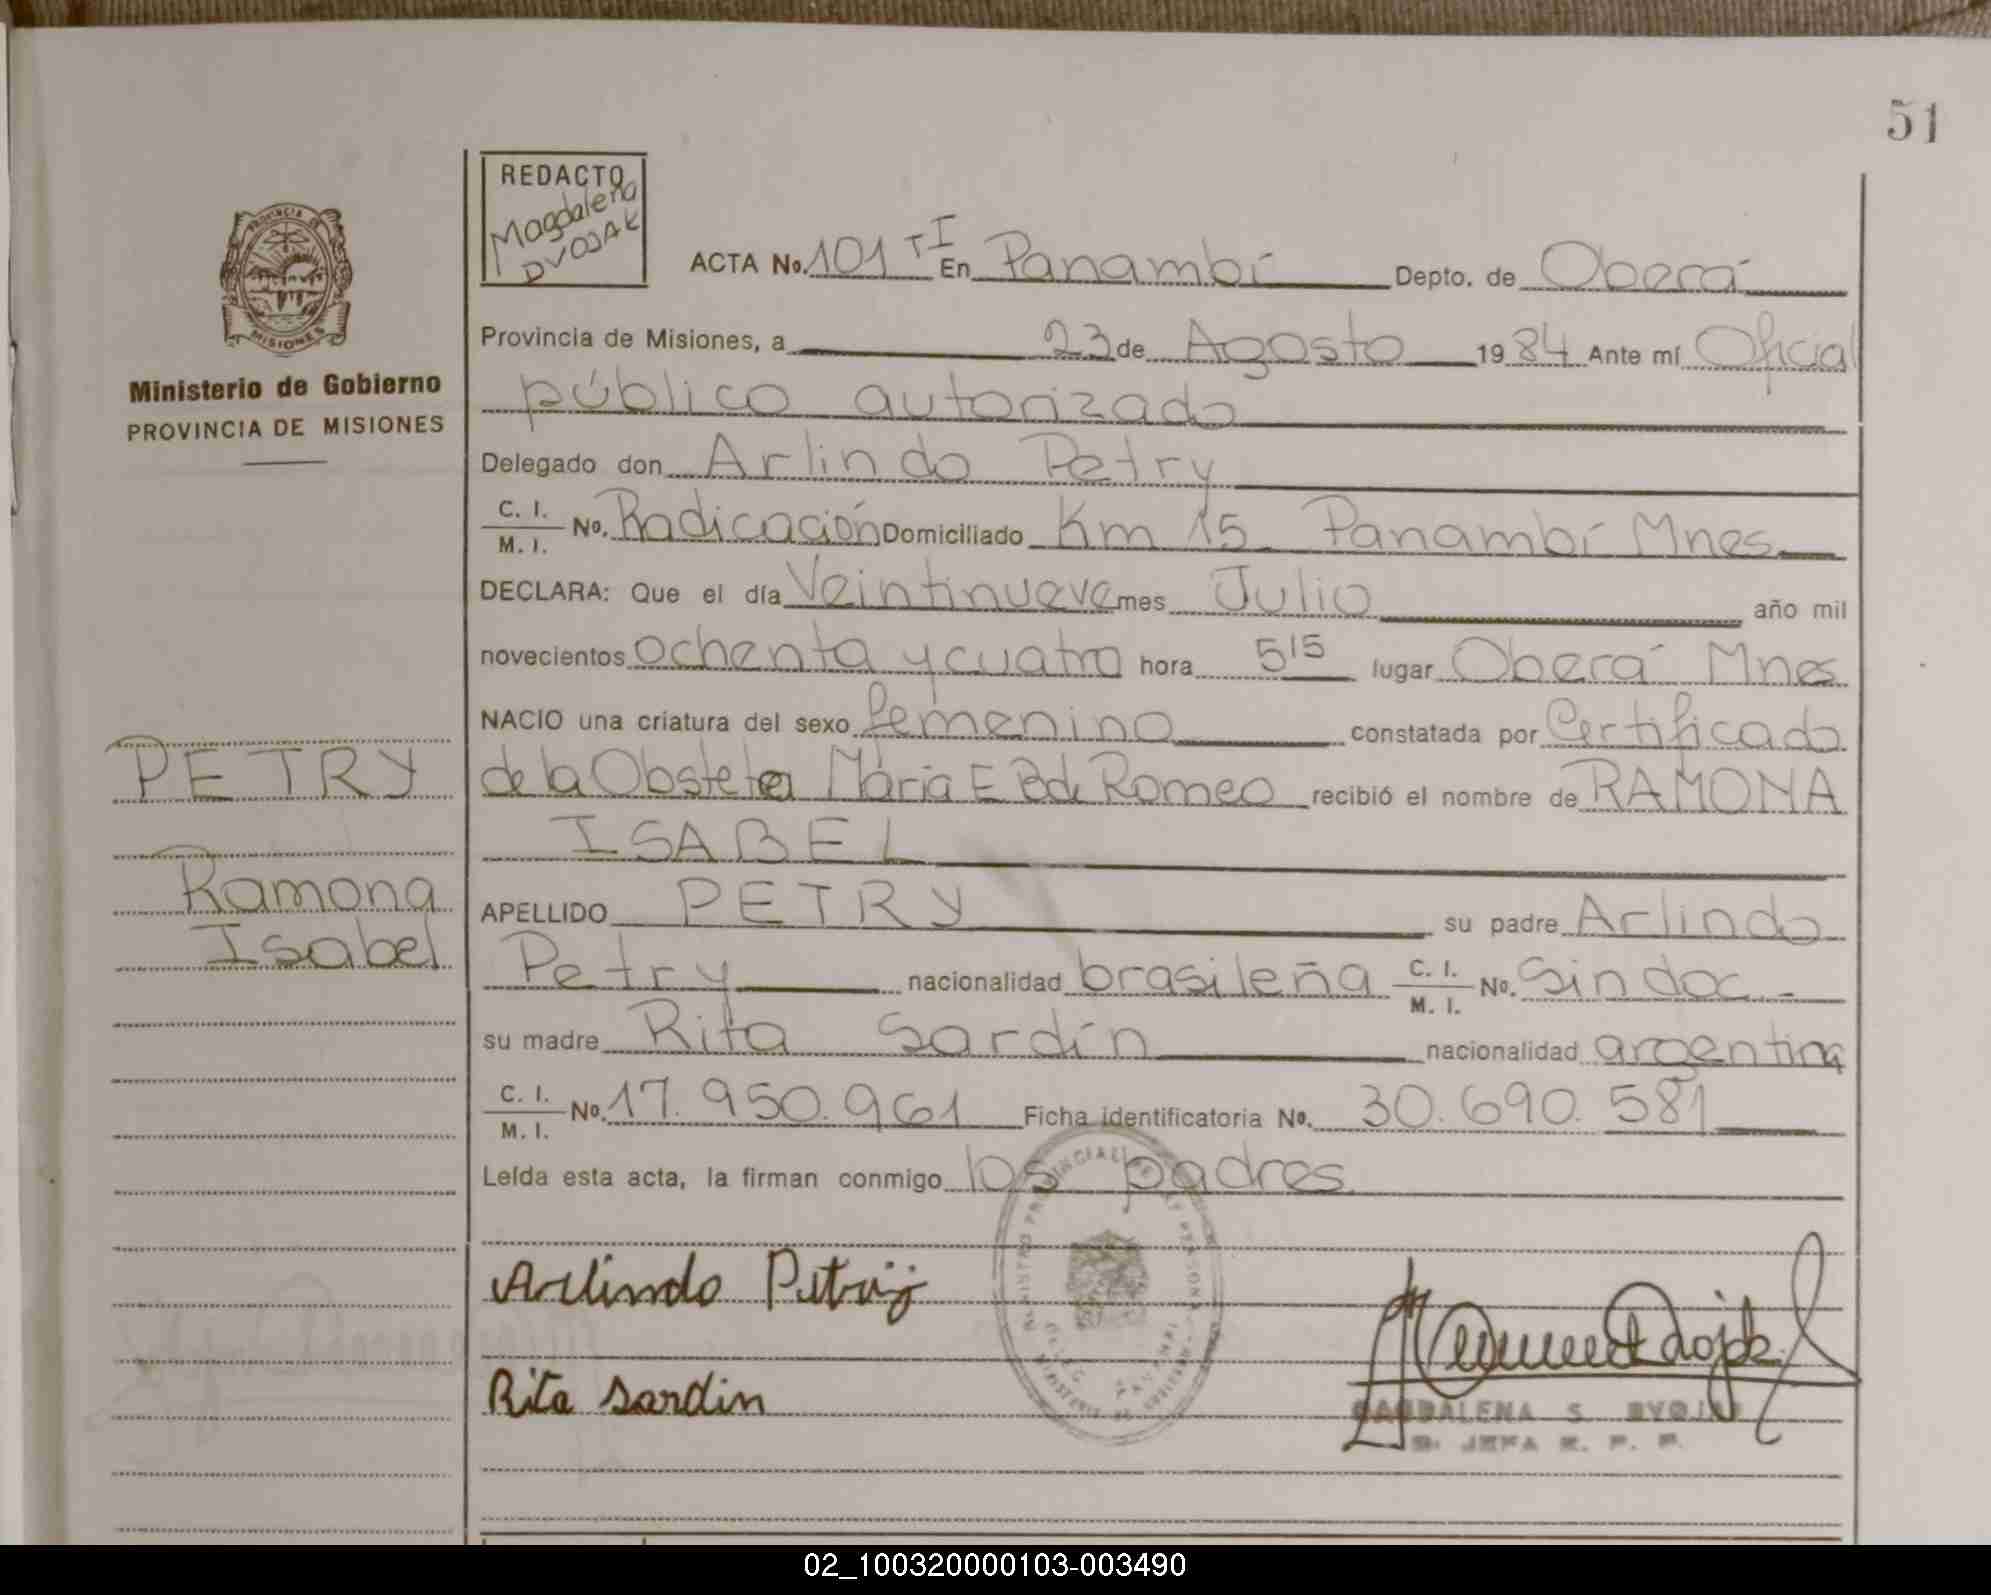 51
REDACTO
Magdalena
DVOJAK
PROVINCIA DE
MISIONES
Ministerio de Gobierno
PROVINCIA DE MISIONES
ACTA No. 101 TI En Panambí Depto. de Oberá
Provincia de Misiones, a 23 de Agosto 1984 Ante mí Oficial
público autorizado
Delegado don Arlindo Petry
C. I.
M. I. No. Radicación Domiciliado Km 15 Panambí Mnes
DECLARA: Que el día Veintinueve mes Julio año mil
novecientos ochenta y cuatro hora 5 15 lugar Oberá Mnes
NACIO una criatura del sexo femenino constatada por Certificado
PETRY
de la María E de Romeo recibió el nombre de RAMONA
ISABEL
Ramona
Isabel
APELLIDO PETRY su padre Arlindo
Petry nacionalidad brasileña C. I.
M. I. No. Sin doc.-
su madre Rita Sardín nacionalidad argentina
C. I.
M. I. No. 17.950.961 Ficha identificatoria No. 30.690.581
Leída esta acta, la firman conmigo los padres
Arlindo Petrÿ
Rita Sardin
MAGDALENA S. DVOJAK
JEFA R. P. P.
02_100320000103-003490